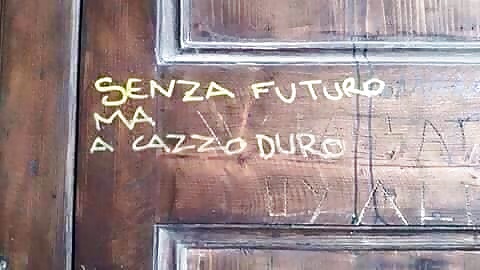 SENZA FUTURO
MA
A CAZZO DURO